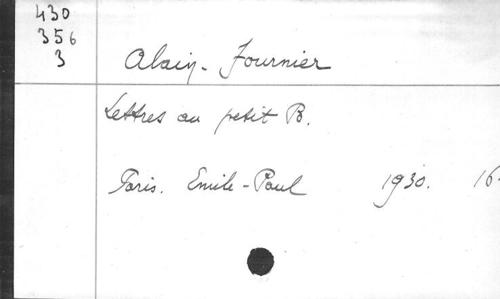 430
356
3
Alain-Fournier
Lettres au petit B.
Paris. Emile-Paul 1930. 16.